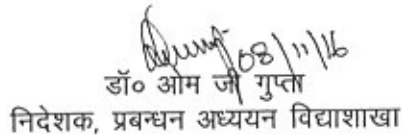 08/11/16
डॉ० ओम जी गुप्ता
निदेशक, प्रबन्धन अध्ययन विद्याशाखा